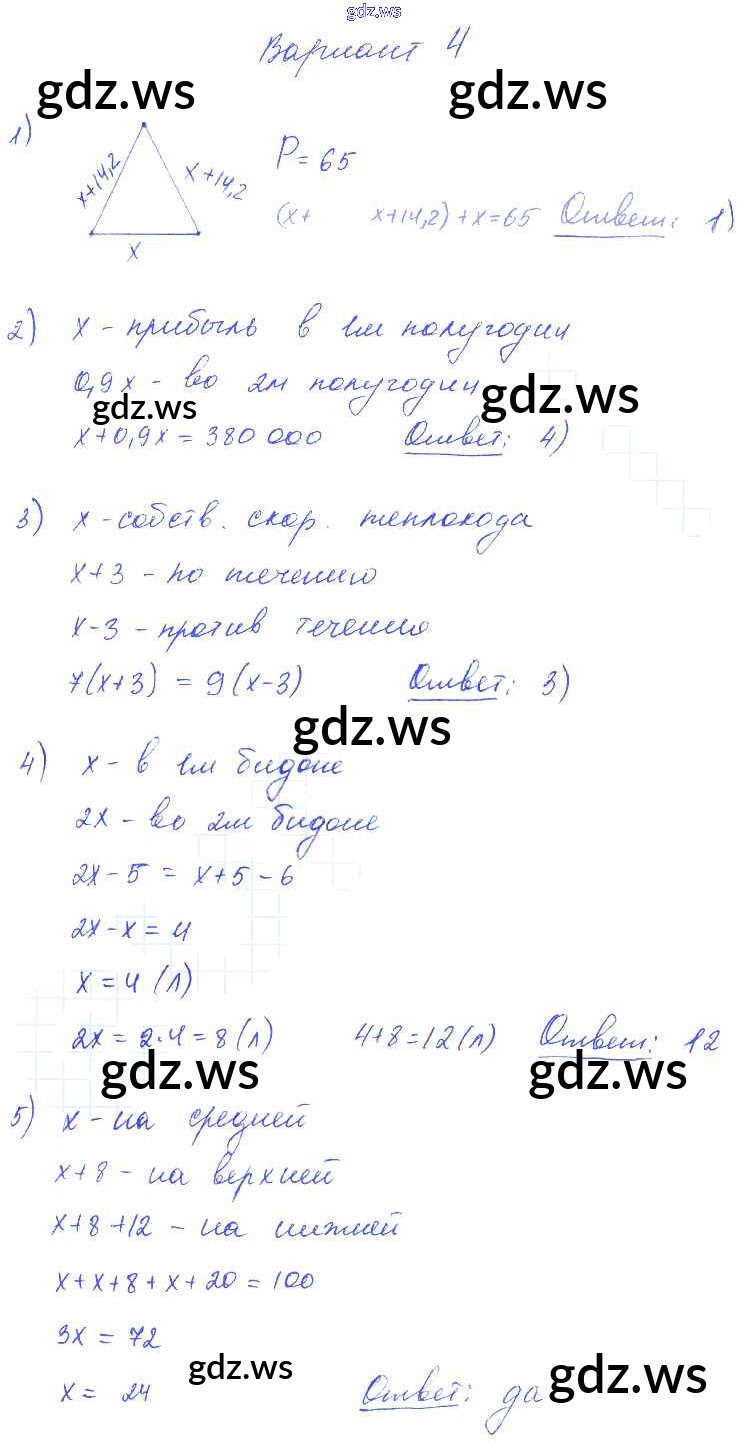 gdz.ws
Вариант 4
gdz.ws gdz.ws
1)
x+14,2 x+14,2 P = 65
x
(x+ x+14,2)+x=65 Ответ: 1)
2) x - прибыль в 1м полугодии
0,9x - во 2м полугодии
gdz.ws gdz.ws
x+0,9x = 380 000 Ответ: 4)
3) x - собств. скор. теплохода
x+3 - по течению
x-3 - против течения
7(x+3) = 9(x-3) Ответ: 3)
gdz.ws
4) x - в 1м бидоне
2x - во 2м бидоне
2x - 5 = x+5 - 6
2x - x = 4
x = 4 (л)
2x = 2·4 = 8 (л) 4+8=12(л) Ответ: 12
gdz.ws gdz.ws
5) x - на средней
x+8 - на верхней
x+8+12 - на нижней
x+x+8+x+20 = 100
3x = 72
gdz.ws gdz.ws
x = 24 Ответ: да